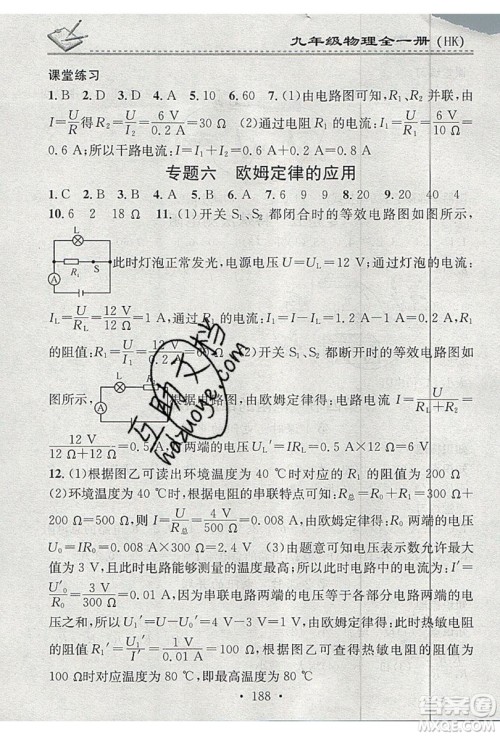 九年级物理全一册(HK)
课堂练习
1. B 2. D 3. D 4. A 5. 10 6. 60 7. (1)由电路图可知, R₁、R₂ 并联,由
I=U/R得R₂=U/I₂=6 V/0.2 A=30 Ω (2)通过电阻 R₁ 的电流:I₁=U/R₁=6 V/10 Ω=
0.6 A;所以干路电流:I=I₁+I₂=0.6 A+0.2 A=0.8 A
专题六 欧姆定律的应用
1. C 2. B 3. B 4. A 5. 9 8. 20 9. 20 40 4
10. 6 2 18 Ω 11. (1)开关 S₁、S₂ 都闭合时的等效电路图如图所示,
L
R₁ S
A
此时灯泡正常发光,电源电压 U=U_L=12 V;通过灯泡的电流:
I_L=U/R_L=12 V/12 Ω=1 A
的阻值:
(2)开关 S₁、S₂ 都断开时的等效电路图
如图所示,
L
A
根据电路图,由欧姆定律得:电路电流 I=U/(R_L+R₂)
=0.5 A,灯泡两端的电压 U_L′=I′R_L=0.5 A×12 Ω=6 V
12. (1)根据图乙可读出环境温度为 40 ℃时对应的 R₁ 的阻值为 200 Ω
(2)环境温度为 40 ℃时,根据电阻的串联特点可知:R总=R₀+R₁=300 Ω+
200 Ω=500 Ω,I=U/R总=4 V/500 Ω=0.008 A,由欧姆定律得:R₀ 两端的电压
U₀=IR₀=0.008 A×300 Ω=2.4 V (3)由题意可知电压表示数允许最大
值为 3 V,此时电路能够测量的温度最高,且电路中的电流最大;I′=
U₀′/R₀=3 V/300 Ω=0.01 A,因为串联电路两端电压等于各用电器两端的电压
之和,所以 U₁′=U-U₀′=4 V-3 V=1 V,由欧姆定律得:此时热敏电阻
的阻值:R₁′=U₁′/I′=1 V/0.01 A=100 Ω,由图乙可知热敏电阻的阻值为 100 Ω
时对应温度为 80 ℃,即最高温度为 80 ℃
·188·
互助文档
hdzuoye.com
答案圈